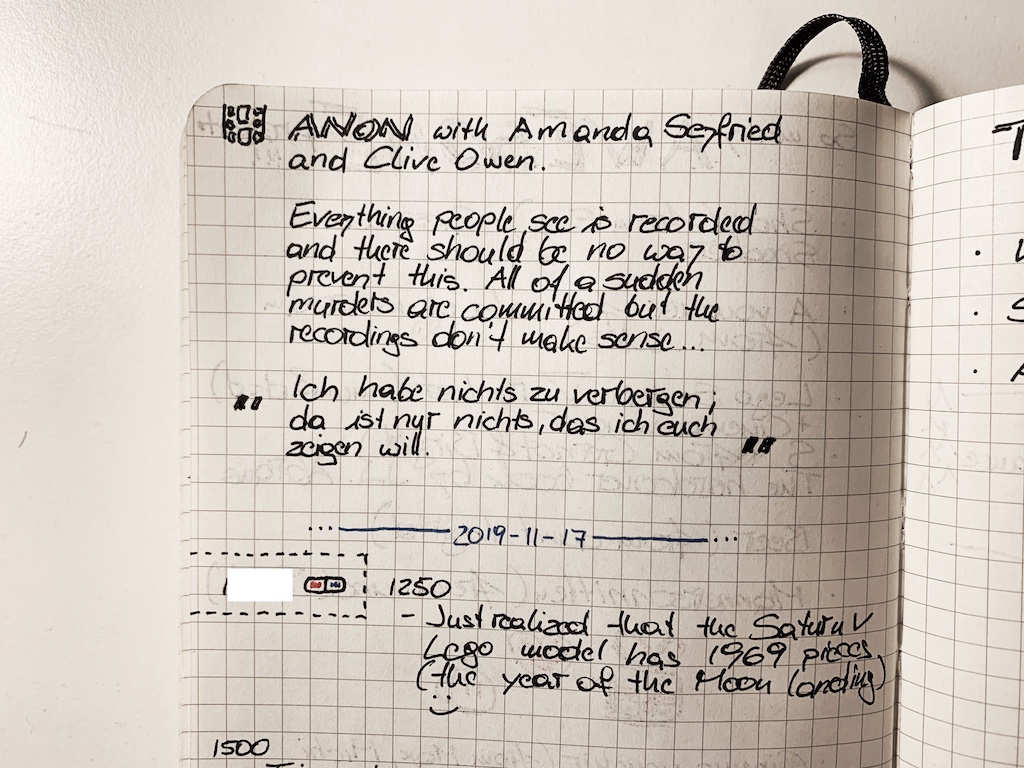 ANON with Amanda Seyfried
and Clive Owen.
Everything people see is recorded
and there should be no way to
prevent this. All of a sudden
murders are committed but the
recordings don't make sense...
" Ich habe nichts zu verbergen;
da ist nur nichts, das ich euch
zeigen will. "
... 2019-11-17 ...
1250
- Just realized that the Saturn V
Lego model has 1969 pieces
(the year of the Moon Landing)
1500